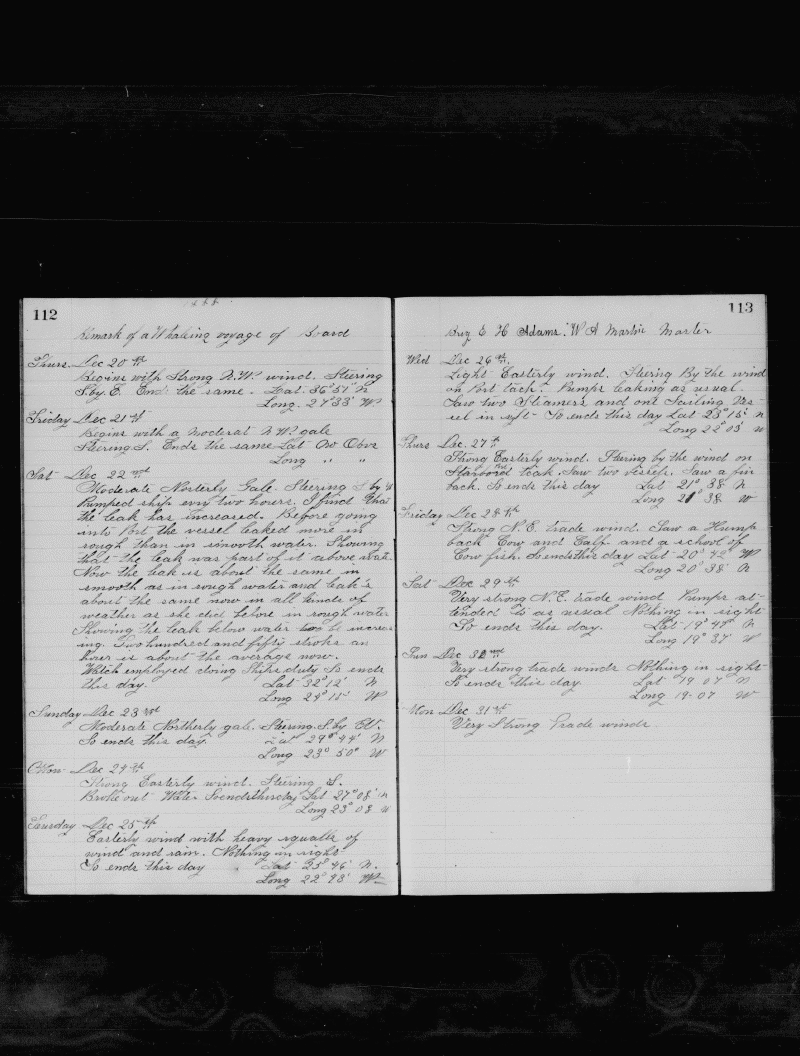 112
Remark of a Whaling voyage of Board
Thurs. Dec 20th
Begins with Strong N.W. wind. Steering
S. by E. Ends the same. Lat. 36° 51' N
Long. 27° 33' W
Friday Dec 21st
Begins with a Moderat N.W. gale
Steering S. Ends the same Lat No Obsv
Long " "
Sat Dec 22nd
Moderate Norterly Gale. Steering S by W
Pumped ship evry two hours. I find that
the leak has increased. Before going
into Port the vessel leaked more in
rough than in smooth water. Showing
that the leak was part of it above water
Now the leak is about the same in
smooth as in rough water and leak's
about the same now in all kinds of
weather as she did before in rough water
Showing the leak below water to be increas
ing. Two hundred and fifty stroks an
hour is about the average now.
Watch employed doing Ships duty So ends
this day. Lat 32° 12' N
Long 24° 11' W
Sunday Dec 23rd
Moderate Northerly gale. Steering S. by W.
So ends this day. Lat 29° 44' N
Long 23° 50' W
Mon Dec 24th
Strong Easterly wind. Steering S.
Broke out Water So ends this day Lat 27° 08' N
Long 23° 08 W
Tuesday Dec 25th
Easterly wind with heavy squalls of
wind and rain. Nothing in sight
So ends this day Lat 25° 46' N.
Long 22° 28' W
113
Brig E H Adams. W A Martin Master
Wed Dec 26th.
Light Easterly wind. Steering By the wind
on Port tack. Pumps leaking as usual.
Saw two Steamers and one Sailing Ves-
sel in sight So ends this day Lat 23° 15' N
Long 22° 03' W
Thurs Dec. 27th
Strong Easterly wind. Steering by the wind on
Starbord teak. Saw two Vessels. Saw a fin
back. So ends this day Lat 21°, 38 N
Long 21° 38 W
Friday Dec 28th
Strong N.E. trade wind. Saw a Hump
back Cow and Calf and a school of
Cow fish. So ends this day Lat 20° 42' W
Long 20° 38' N
Sat Dec 29th
Very strong N.E. trade wind Pumps at-
tended to as usual Nothing in sight
So ends this day. Lat 19° 47' N
Long 19° 37' W
Sun Dec 30
Very strong trade winds Nothing in sight
So ends this day Lat 19 07 N
Long 19-07 W
Mon Dec 31st
Very Strong Trade winds